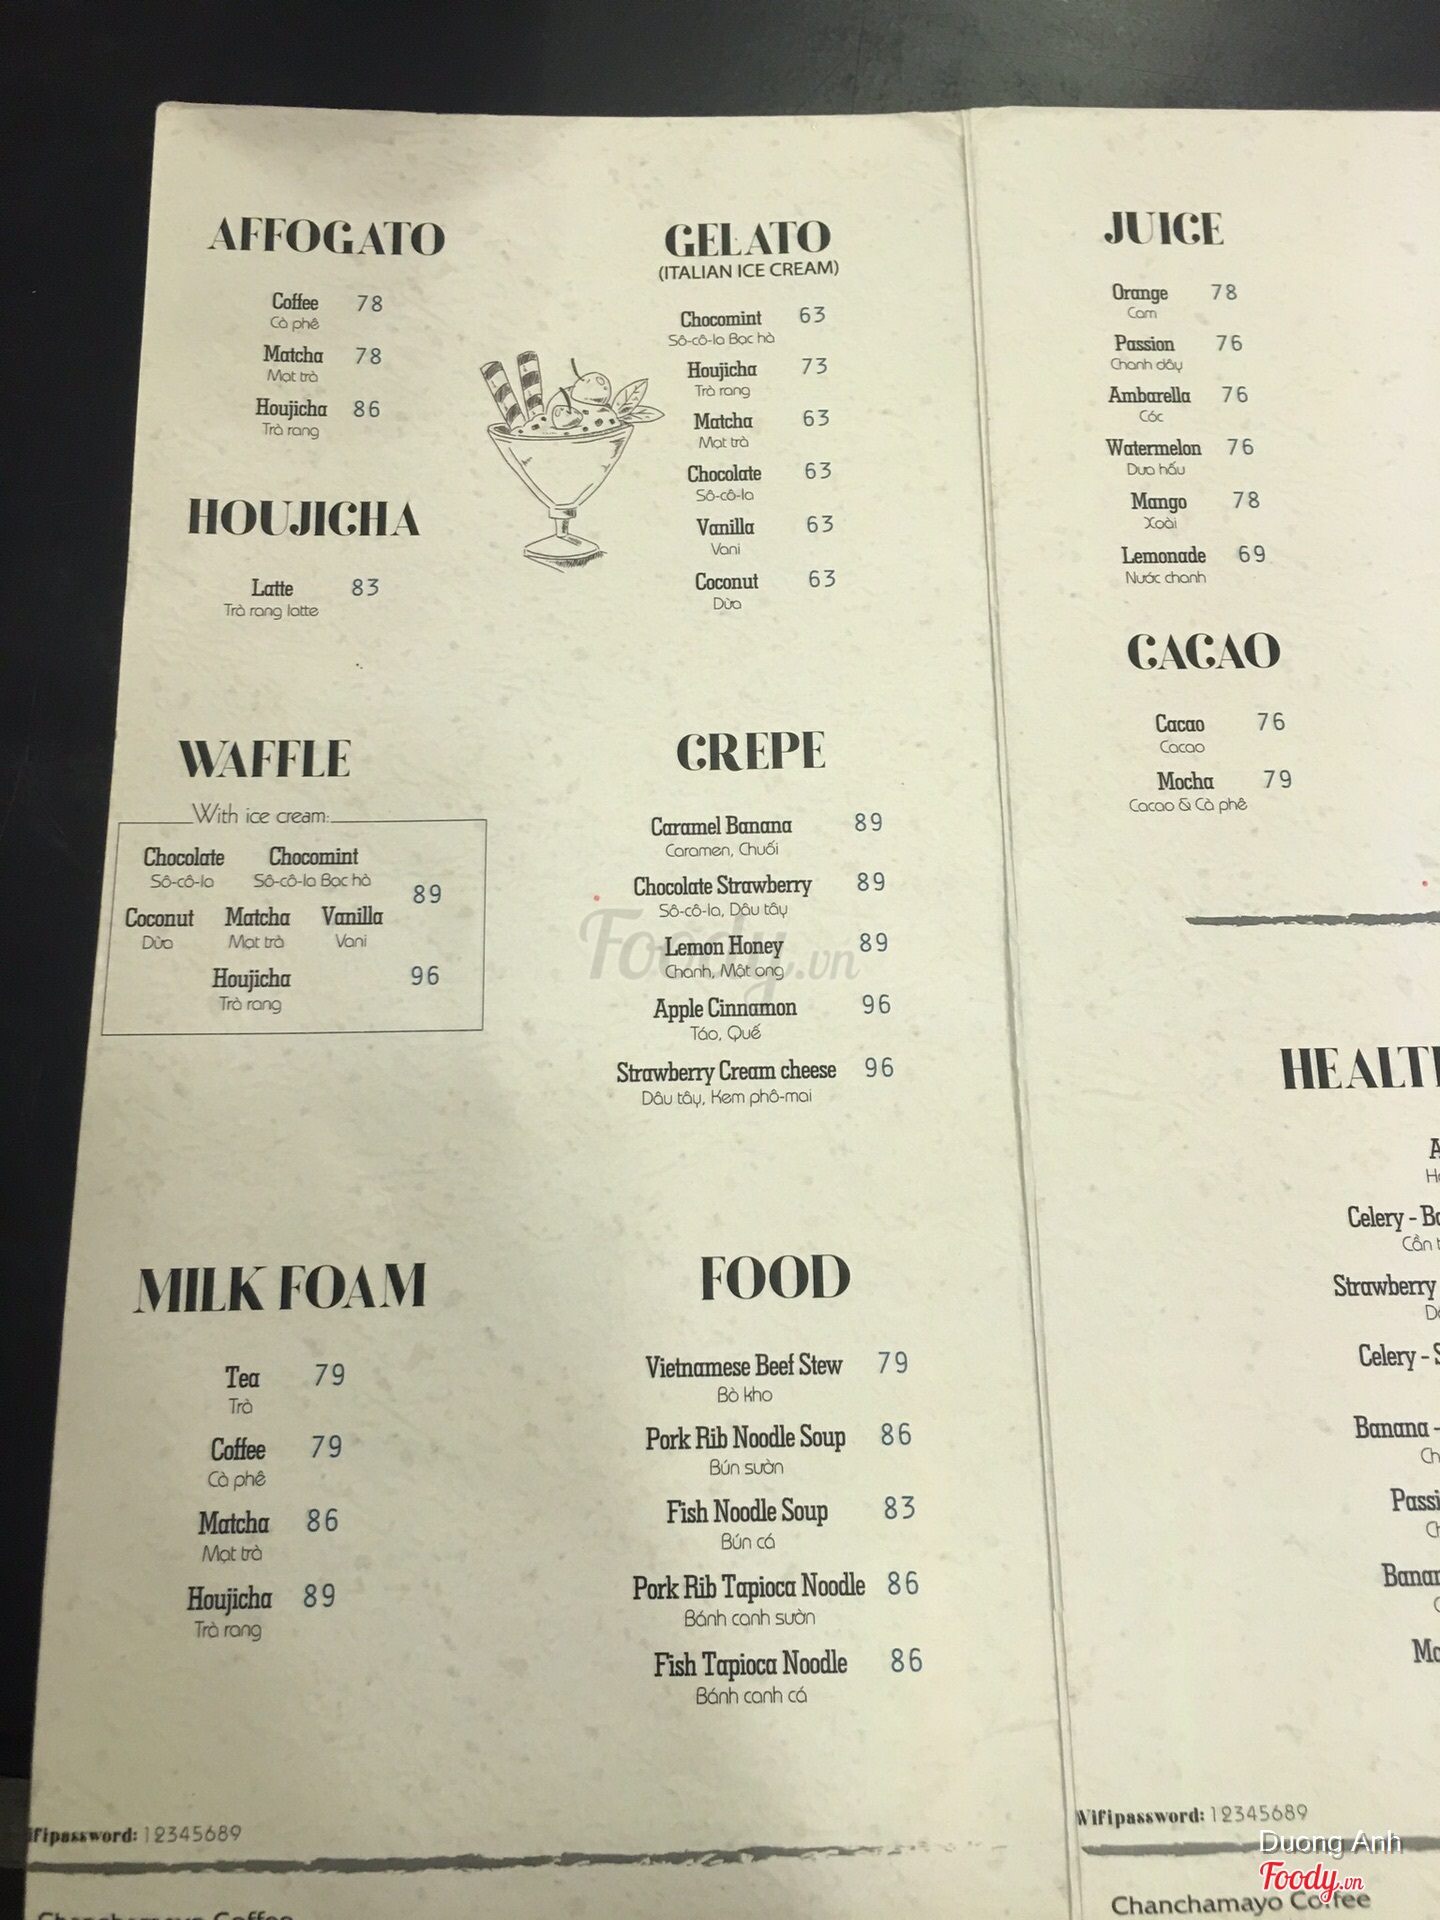 AFFOGATO
Coffee 78
Cà phê
Matcha 78
Mạt trà
Houjicha 86
Trà rang
HOUJICHA
Latte 83
Trà rang latte
GELATO
(ITALIAN ICE CREAM)
Chocomint 63
Sô-cô-la Bạc hà
Houjicha 73
Trà rang
Matcha 63
Mạt trà
Chocolate 63
Sô-cô-la
Vanilla 63
Vani
Coconut 63
Dừa
WAFFLE
With ice cream:
Chocolate Chocomint
Sô-cô-la Sô-cô-la Bạc hà
89
Coconut Matcha Vanilla
Dừa Mạt trà Vani
Houjicha 96
Trà rang
CREPE
Caramel Banana 89
Caramen, Chuối
Chocolate Strawberry 89
Sô-cô-la, Dâu tây
Lemon Honey 89
Chanh, Mật ong
Apple Cinnamon 96
Táo, Quế
Strawberry Cream cheese 96
Dâu tây, Kem phô-mai
Foody.vn
MILK FOAM
Tea 79
Trà
Coffee 79
Cà phê
Matcha 86
Mạt trà
Houjicha 89
Trà rang
FOOD
Vietnamese Beef Stew 79
Bò kho
Pork Rib Noodle Soup 86
Bún sườn
Fish Noodle Soup 83
Bún cá
Pork Rib Tapioca Noodle 86
Bánh canh sườn
Fish Tapioca Noodle 86
Bánh canh cá
ifipassword: 12345689
JUICE
Orange 78
Cam
Passion 76
Chanh dây
Ambarella 76
Cóc
Watermelon 76
Dưa hấu
Mango 78
Xoài
Lemonade 69
Nước chanh
CACAO
Cacao 76
Cacao
Mocha 79
Cacao & Cà phê
HEALT
Celery - B
Cần
Strawberry
Celery - S
Banana -
Ch
Passi
Banan
Wifipassword: 12345689
Duong Anh
Foody.vn
Chanchamayo Coffee
Chanchamayo Coffee